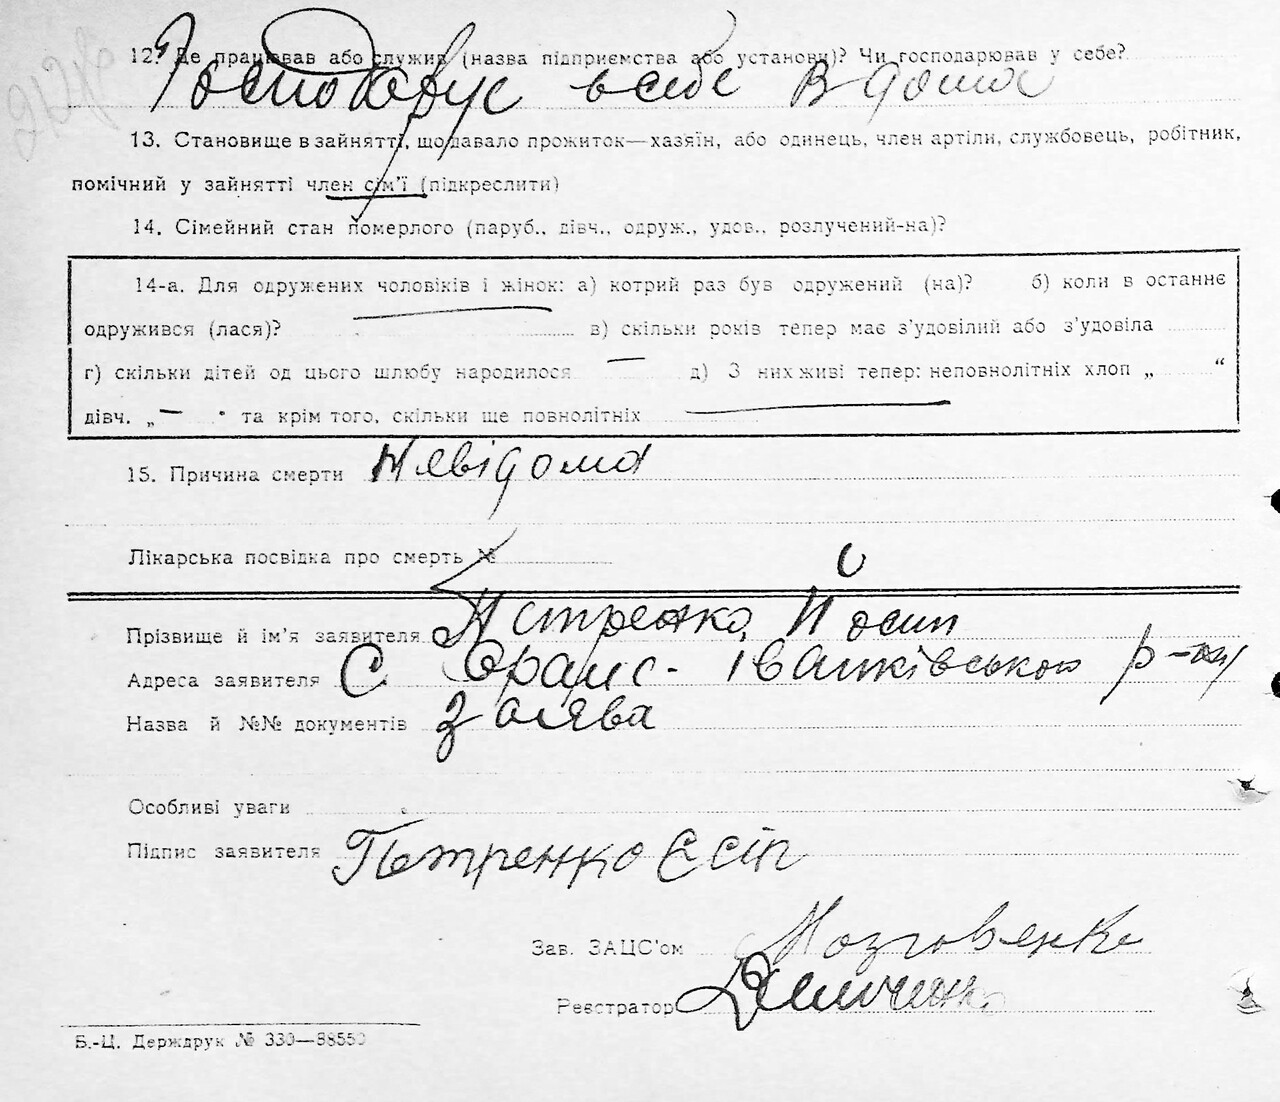 12. Де працював або служив (назва підприємства або установи)? Чи господарював у себе?
Господарує в себе в дома
13. Становище в зайнятті, що давало прожиток—хазяїн, або одинець, член артіли, службовець, робітник,
помічний у зайнятті член сім'ї (підкреслити)
14. Сімейний стан померлого (паруб., дівч., одруж., удов., розлучений-на)?
14-а. Для одружених чоловіків і жінок: а) котрий раз був одружений (на)? б) коли в останнє
одружився (лася)? в) скільки років тепер має з'удовілий або з'удовіла
г) скільки дітей од цього шлюбу народилося — д) З них живі тепер: неповнолітніх хлоп „ “
дівч. „ — “ та крім того, скільки ще повнолітніх
15. Причина смерти Невідома
Лікарська посвідка про смерть №
Прізвище й ім'я заявителя Петренко Йосип
Адреса заявителя С Іванківського р-ну
Назва й №№ документів заява
Особливі уваги
Підпис заявителя Петренко Єсіп
Зав. ЗАЦС'ом Мозговенко
Реєстратор
Б.-Ц. Держдрук № 330—88550